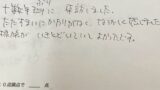 十数年ぶりに 来訪しました。
たたずまいにかわりがなく、なつかしく感じました
いきとどいていて よかったです。
点